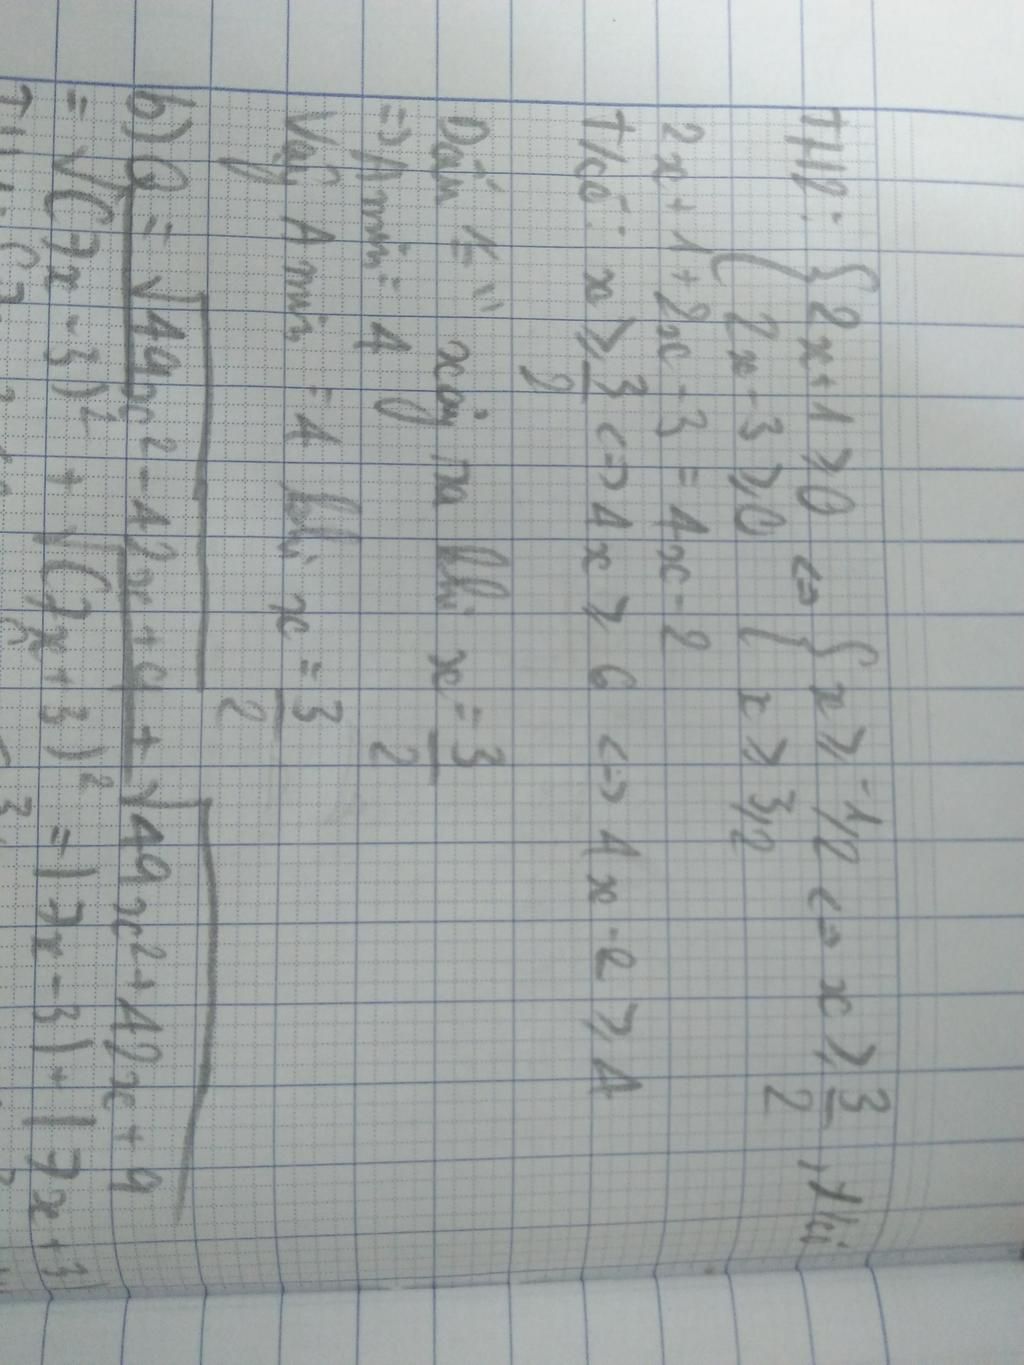 TH2: { 2x+1 ≥ 0 ⇔ { x ≥ -1/2 ⇔ x ≥ 3/2
{ 2x-3 ≥ 0 { x ≥ 3/2
2x+1+2x-3 = 4x-2
T/có: x ≥ 3/2 ⇔ 4x ≥ 6 ⇔ 4x-2 ≥ 4
Dấu "=" xảy ra khi x = 3/2
=> A min = 4
Vậy A min = 4 khi x = 3/2
b) Q = √49x²-42x+9 + √49x²+42x+9
= √(7x-3)² + √(7x+3)² = |7x-3| + |7x+3|